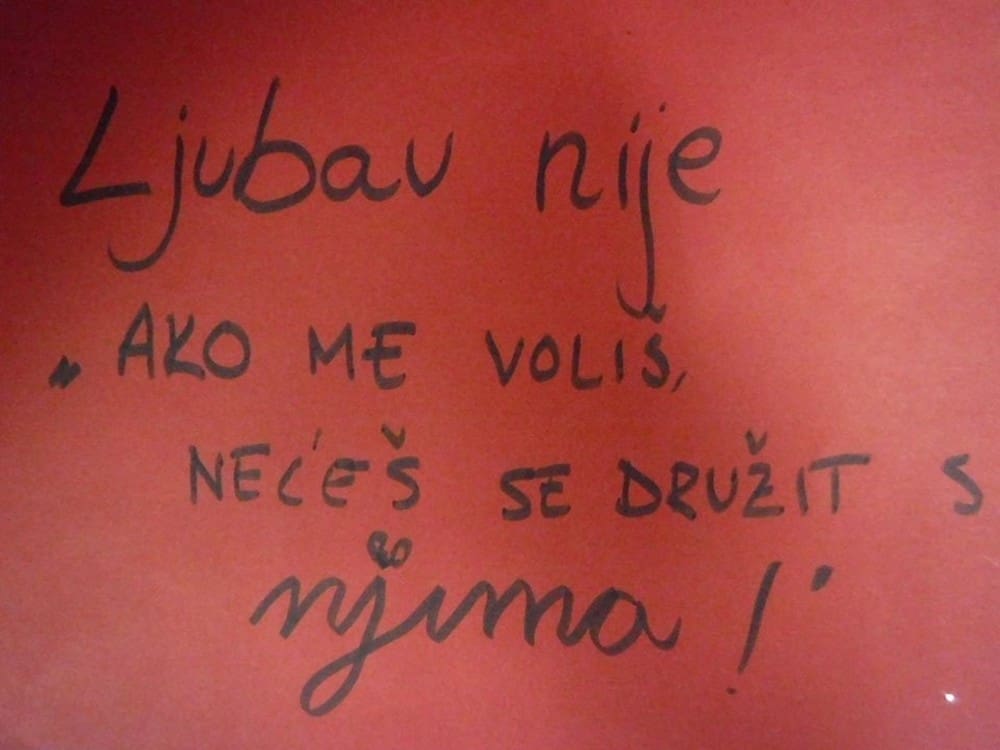 Ljubav nije
„AKO ME VOLIŠ,
NEĆEŠ SE DRUŽIT S
njima!"